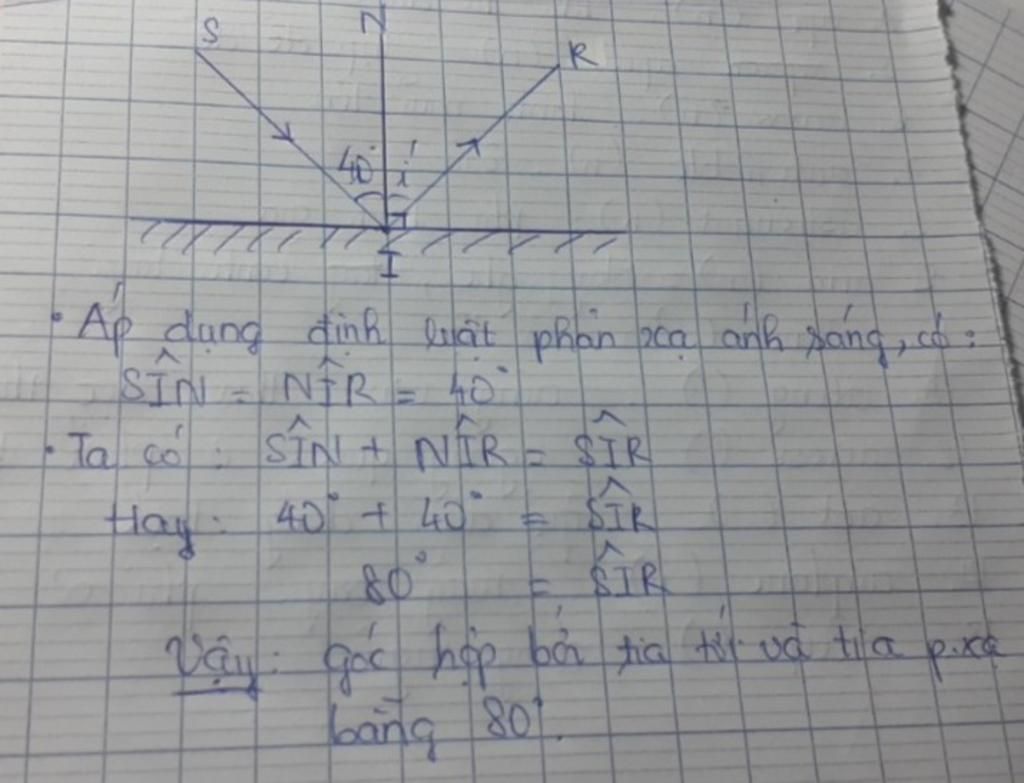 S N R
40° i'
I
• Áp dụng định luật phản xạ ánh sáng, có:
SÎN = NÎR = 40°
• Ta có: SÎN + NÎR = SÎR
Hay: 40° + 40° = SÎR
80° = SÎR
Vậy: góc hợp bởi tia tới và tia p.xạ
bằng 80°.